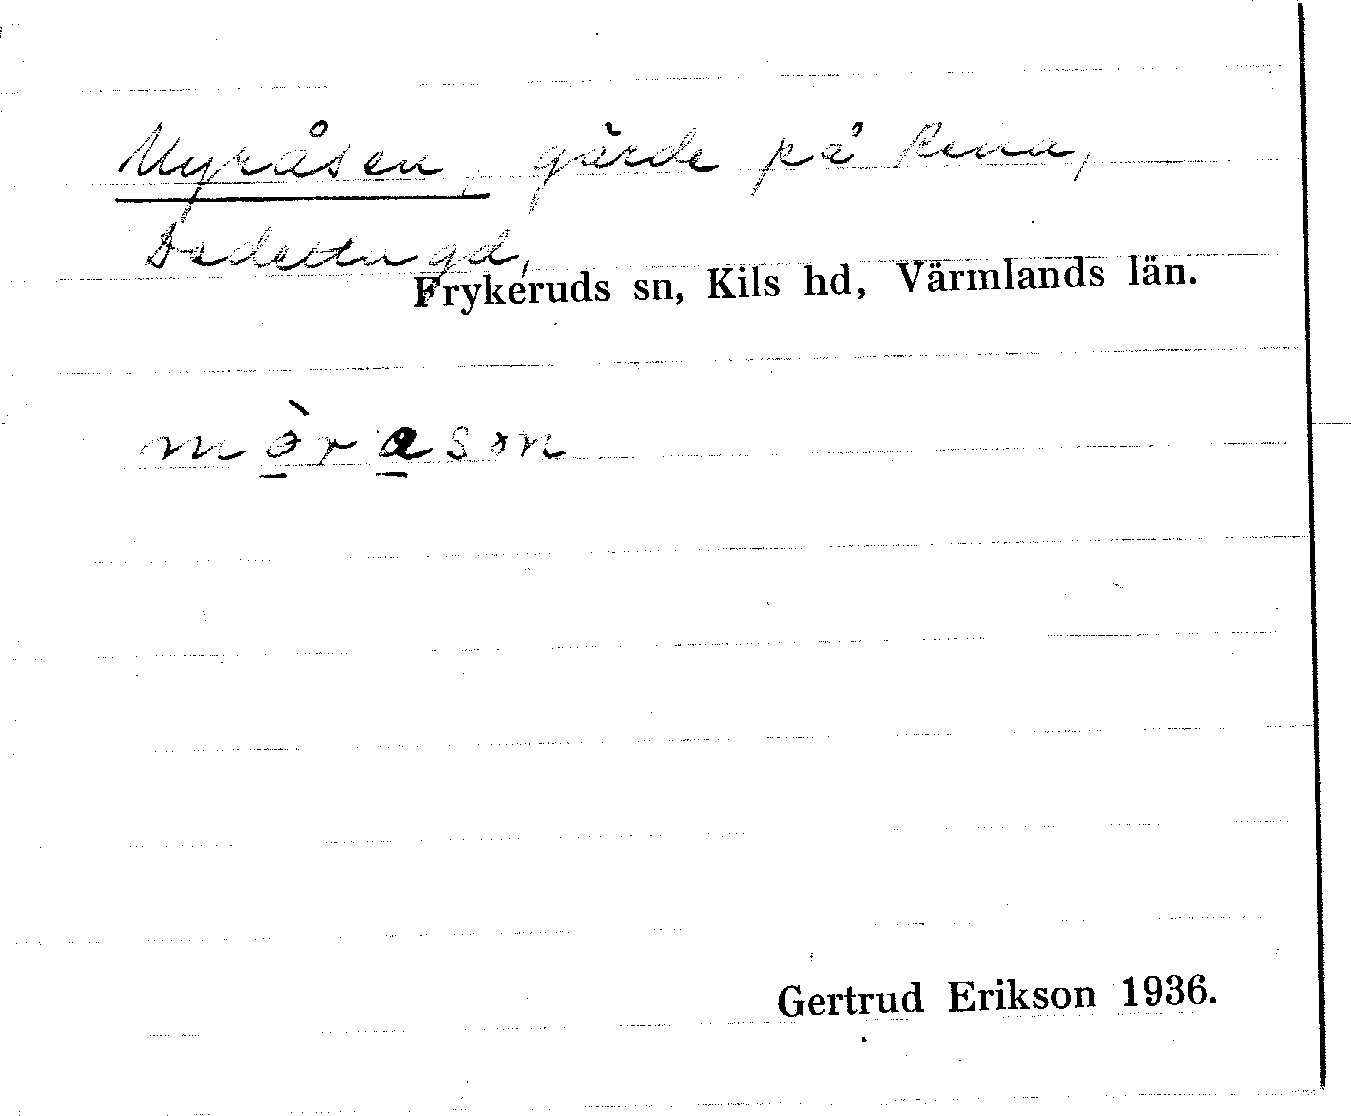 Myråsen, gärde på Rena,
gd,
Frykeruds sn, Kils hd, Värmlands län.
mòrasən
Gertrud Erikson 1936.